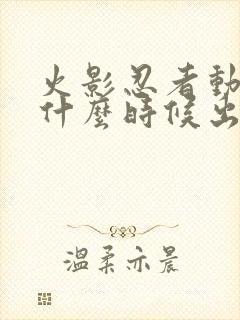 火影忍者動
什麼時候出
溫柔亦晨